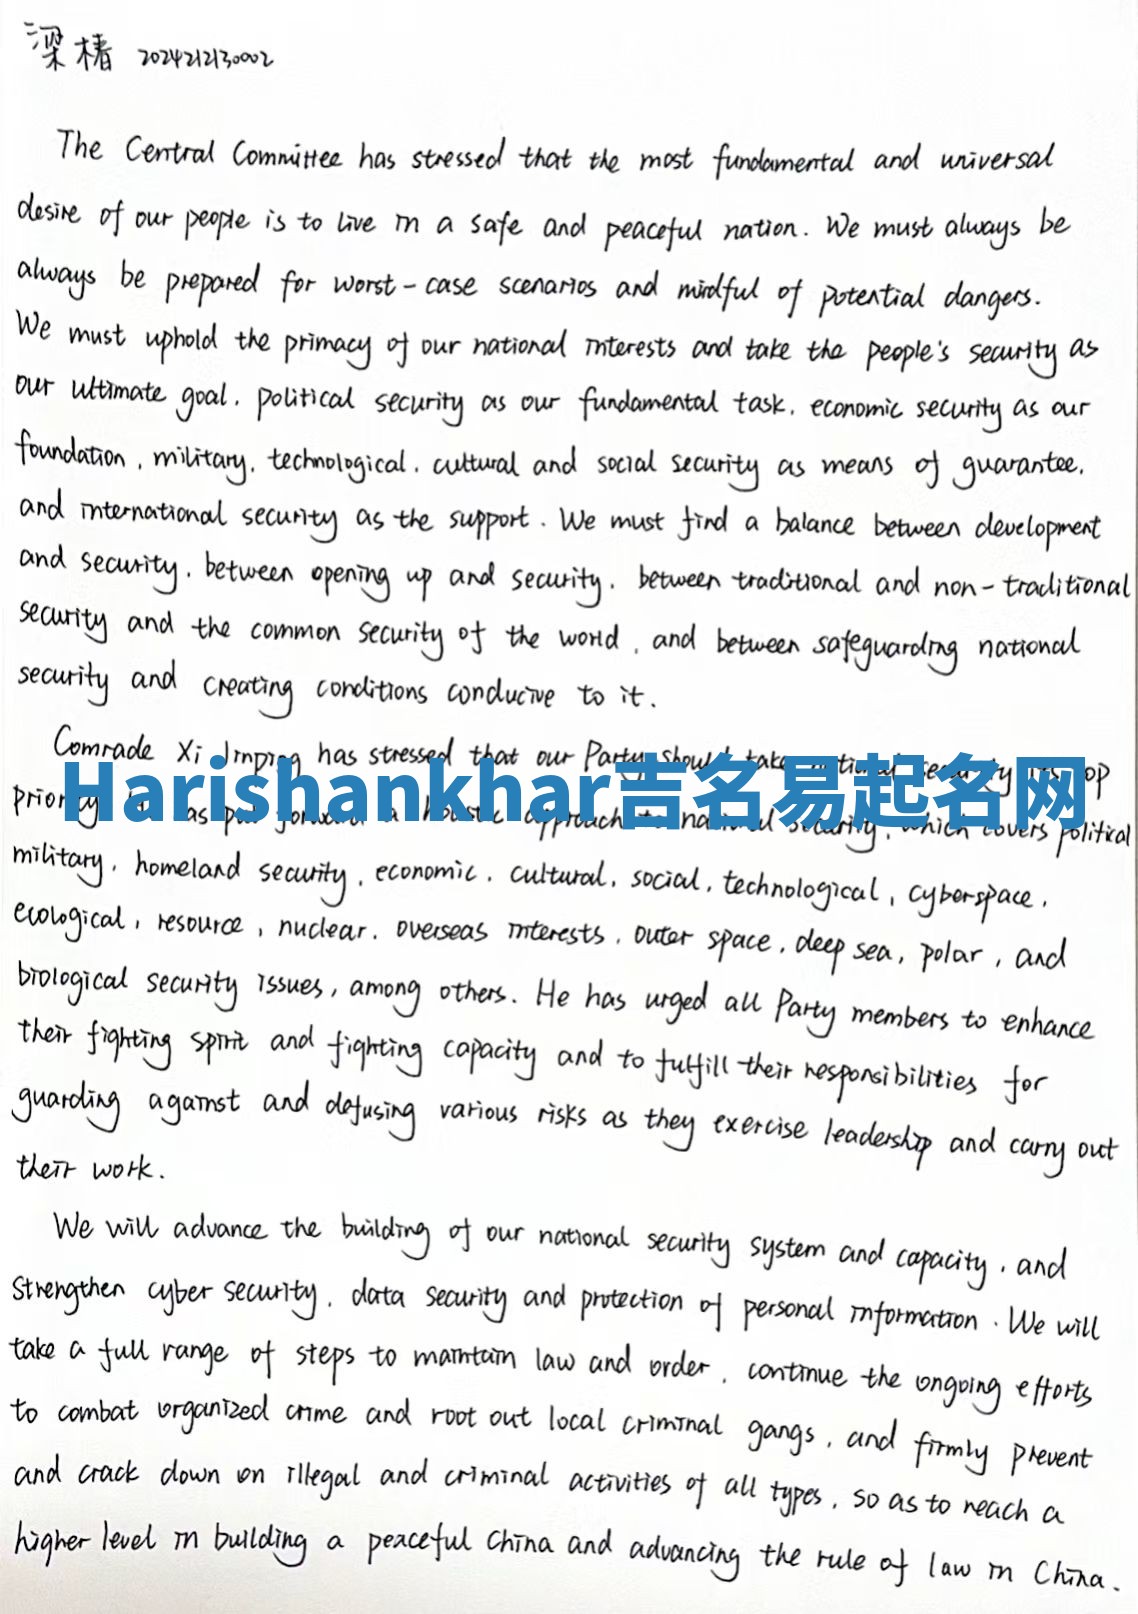 梁椿 2024212130002
The Central Committee has stressed that the most fundamental and universal
desire of our people is to live in a safe and peaceful nation. We must always be
always be prepared for worst-case scenarios and mindful of potential dangers.
We must uphold the primacy of our national interests and take the people's security as
our ultimate goal, political security as our fundamental task, economic security as our
foundation, military, technological, cultural and social security as means of guarantee,
and international security as the support. We must find a balance between development
and security, between opening up and security, between traditional and non-traditional
security and the common security of the world, and between safeguarding national
security and creating conditions conducive to it.
Comrade Xi Jinping has stressed that our Party should take
Harishankhar吉名易起名网
priority approach security, which covers political
military, homeland security, economic, cultural, social, technological, cyberspace,
ecological, resource, nuclear, overseas interests, outer space, deep sea, polar, and
biological security issues, among others. He has urged all Party members to enhance
their fighting spirit and fighting capacity and to fulfill their responsibilities for
guarding against and defusing various risks as they exercise leadership and carry out
their work.
We will advance the building of our national security system and capacity, and
strengthen cyber security, data security and protection of personal information. We will
take a full range of steps to maintain law and order, continue the ongoing efforts
to combat organized crime and root out local criminal gangs, and firmly prevent
and crack down on illegal and criminal activities of all types, so as to reach a
higher level in building a peaceful China and advancing the rule of law in China.